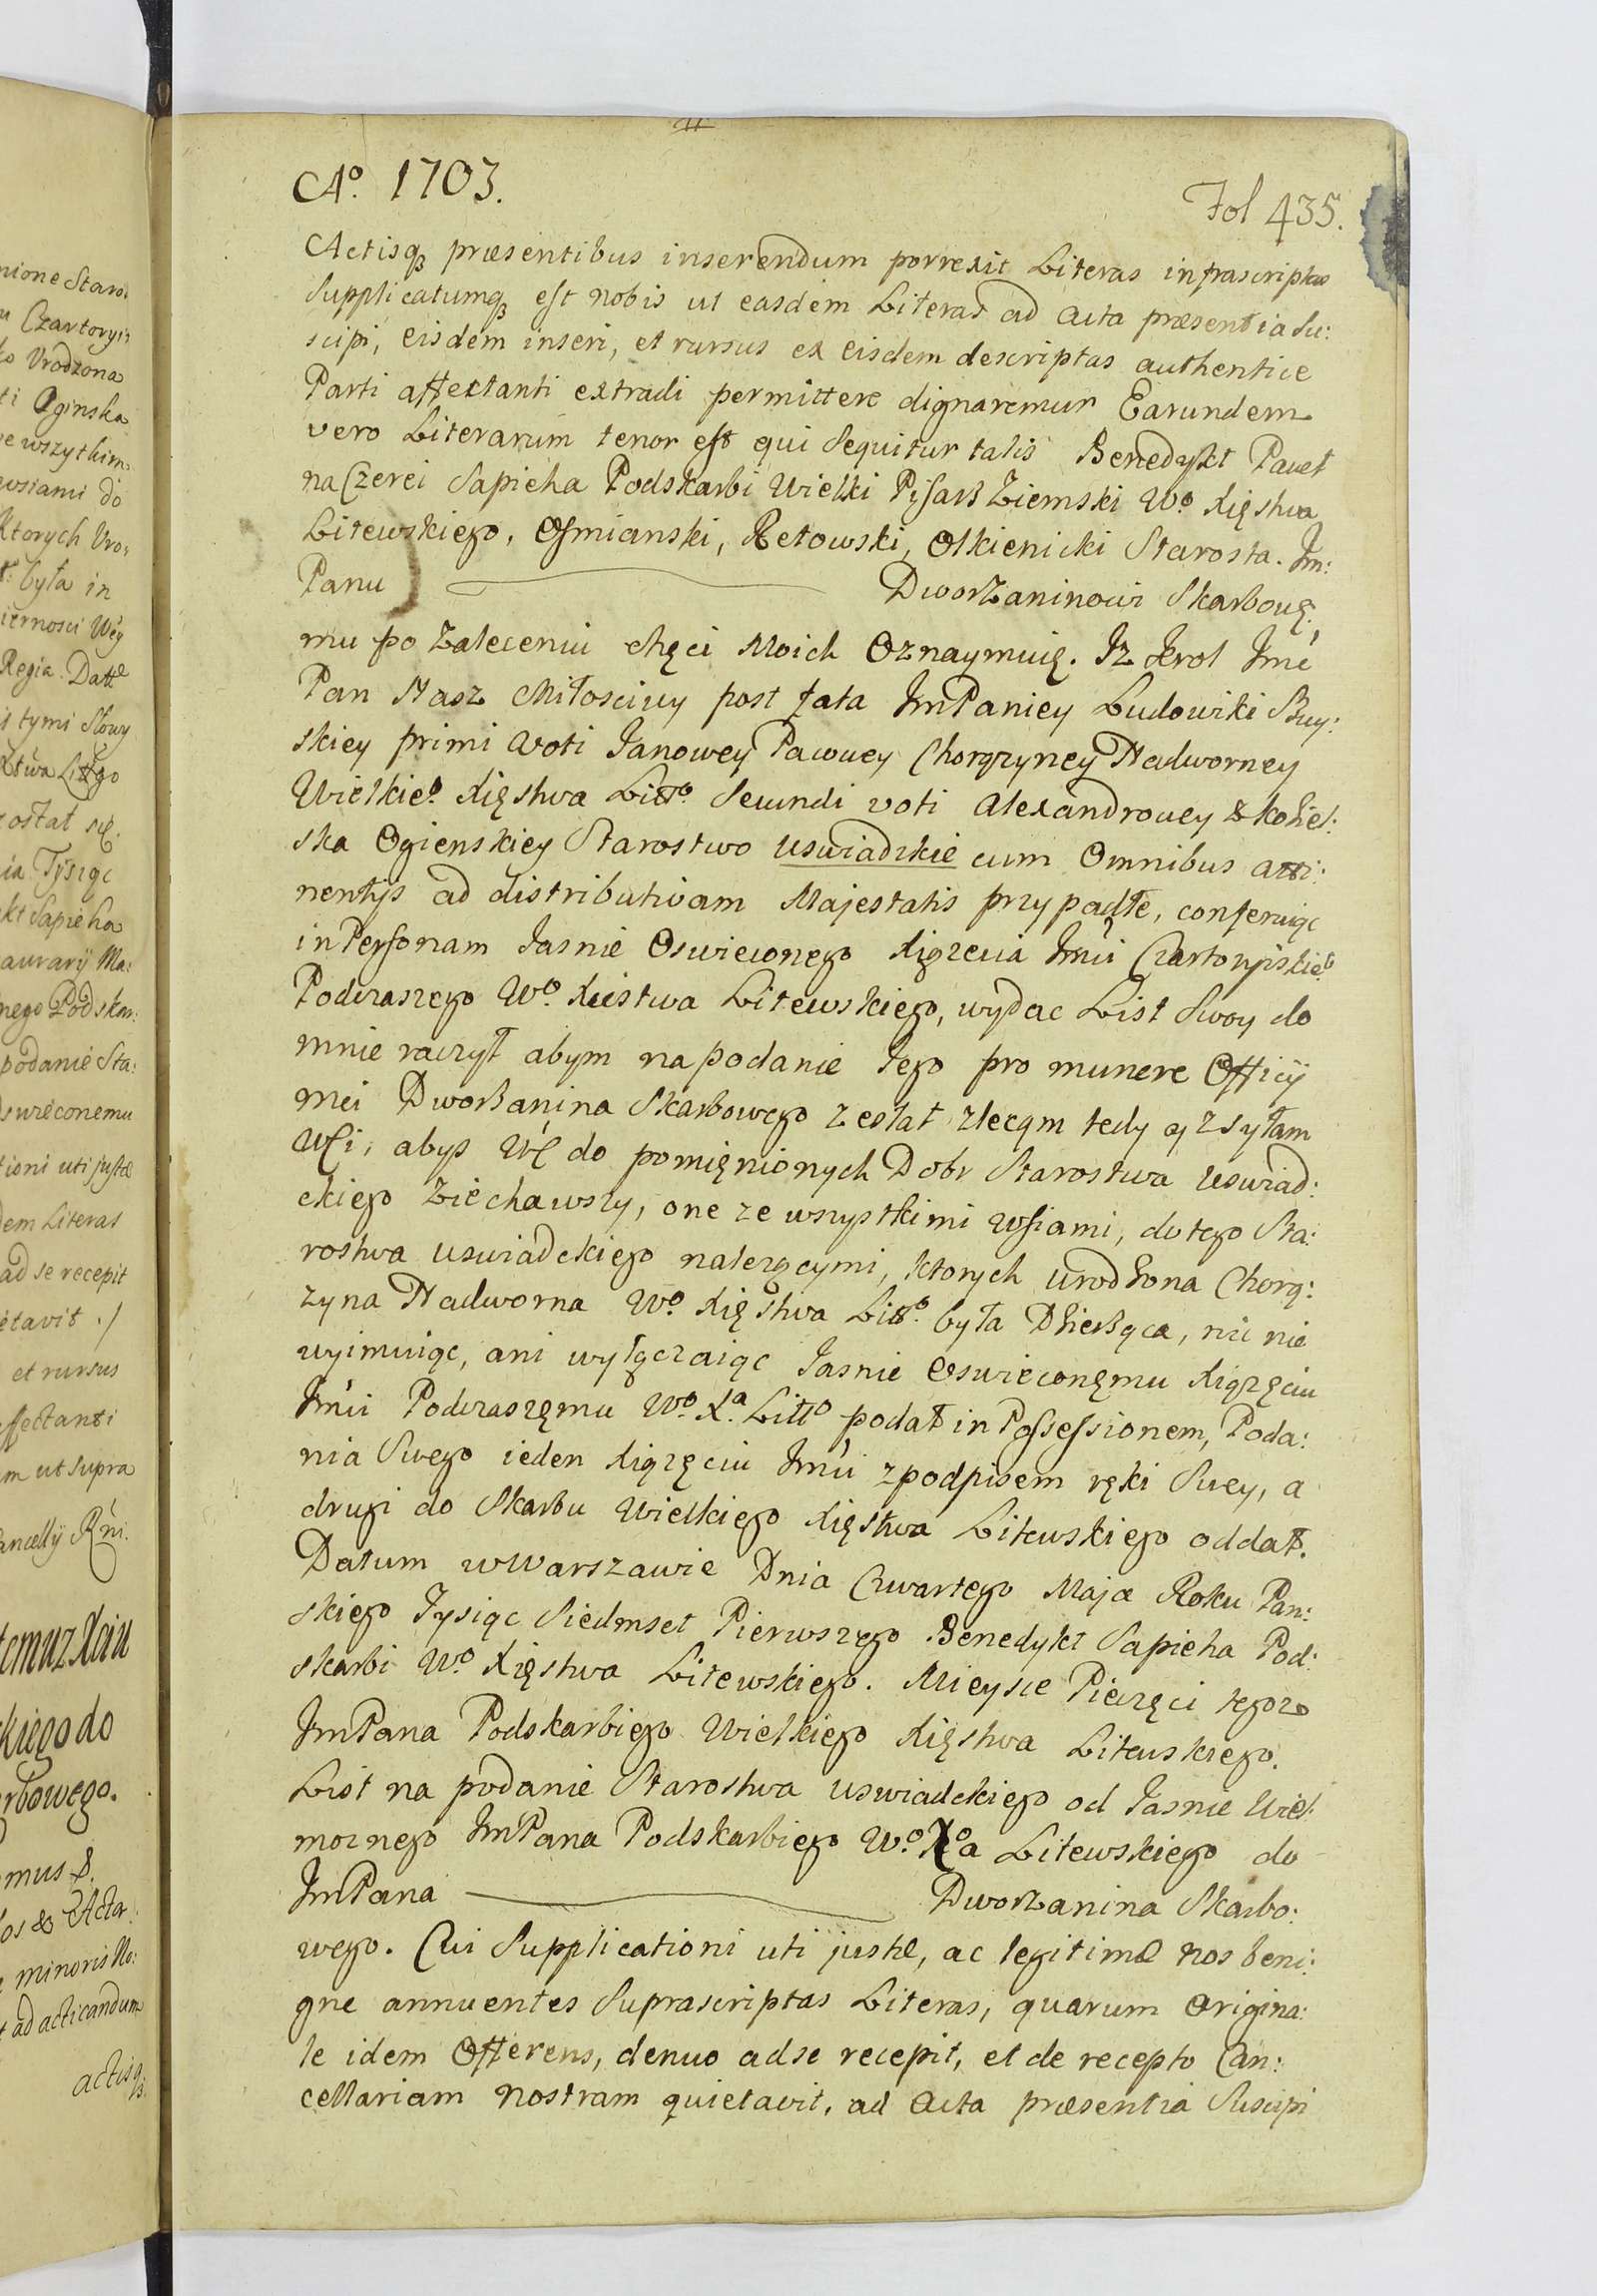 Aº. 1703.
Fol 435.
Actisqȝ præsentibus inserendum porrexit Literas infrascriptas
Supplicatumqȝ est nobis ut easdem Literas ad Acta præsentia Su:
scipi, eisdem inseri, et rursus ex eisdem descriptas authentice
Parti affectanti extradi permittere dignaremur Earundem
vero Literarum tenor est qui Sequitur talis Benedykt Paweł
na Czerei Sapieha Podskarbi Wielki Pisarz Ziemski Wº. Xięstwa
Litewskiego, Osmianski, Retowski, Olkienicki Starosta. Jm:
Panu Dworzaninowi Skarbowę:
mu po zaleceniu chęci Moich Oznaymuię. Iz Krol Jmć
Pan Nasz Miłosciwy post fata JmPaniey Ludowiki Buy:
skiey primi voti Janowey Pacowey Chorązyney Nadworney
Wielkieº. Xięstwa Littº. Secundi voti Alexandrowey z koziel:
ska Ogienskiey Starostwo Uswiadzkie cum Omnibus atti:
nentijs ad distributivam Majestatis przypadłe, conferuiąc
in Personam Jasnie Oswieconego Xiązecia Jmći Czartoryiskieº.
Podczaszego Wº. Xięstwa Litewskiego, wydac List Swoy do
mnie raczył abym na podanie Jego pro munere Officij
mei Dworzanina Skarbowego zesłał zlecąm tedy y zsyłam
Wsci, abys Wść do pomięnionych Dobr Starostwa Uswiad:
ckiego Ziechawszy, one ze wszystkimi Wsiami, do tego Sta:
rostwa uswiadckiego nalezącymi, ktorych urodzona Chorą:
zyna Nadworna Wº. Xięstwa Littº. była Dzierząca, nic nie
wyimuiąc, ani wyłączaiąc Jasnie Oswieconęmu Xiązęciu
Jmći Podczaszęmu Wº. Xª. Littº podał in Possessionem, Poda:
nia Swego ieden Xiązęciu Jmći z podpisem ręki Swey, a
drugi do Skarbu Wielkiego Xięstwa Litewskiego oddał.
Datum w Warszawie Dnia Czwartego Maja Roku Pan:
skiego Tysiąc Siedmset Pierwszego Benedykt Sapieha Pod:
skarbi Wº. Xięstwa Litewskiego. Mieysce Pieczęci tegoz
JmPana Podskarbiego Wielkiego Xięstwa Litewskiego.
List na podanie Starostwa uswiadckiego od Jasnie Wiel:
moznego JmPana Podskarbiego Wº. Xª Litewskiego do
JmPana Dworzanina Skarbo:
wego. Cui Supplicationi uti justæ, ac legitimæ nos beni:
gne annuentes Suprascriptas Literas, quarum Origina:
le idem Offerens, denuo ad se recepit, et de recepto Can:
cellariam nostram quietavit, ad Acta præsentia Suscipi
nione Staro:
Czartoryi:
Urodzona
Oginska
wszytkim
wsiami do
Ktorych Uro:
była in
Regia. Datt
tymi Słowy
ostał się.
Tysiąc
Sapieha
podanie Sta:
swieconemu
tioni uti justæ
dem Literas
ad se recepit
etavit ./
et rursus
ffectanti
m ut supra
ancellÿ Rñi.
kiego do
rbowego.
mus
Acta
minoris
ad acticandum
actisqȝ